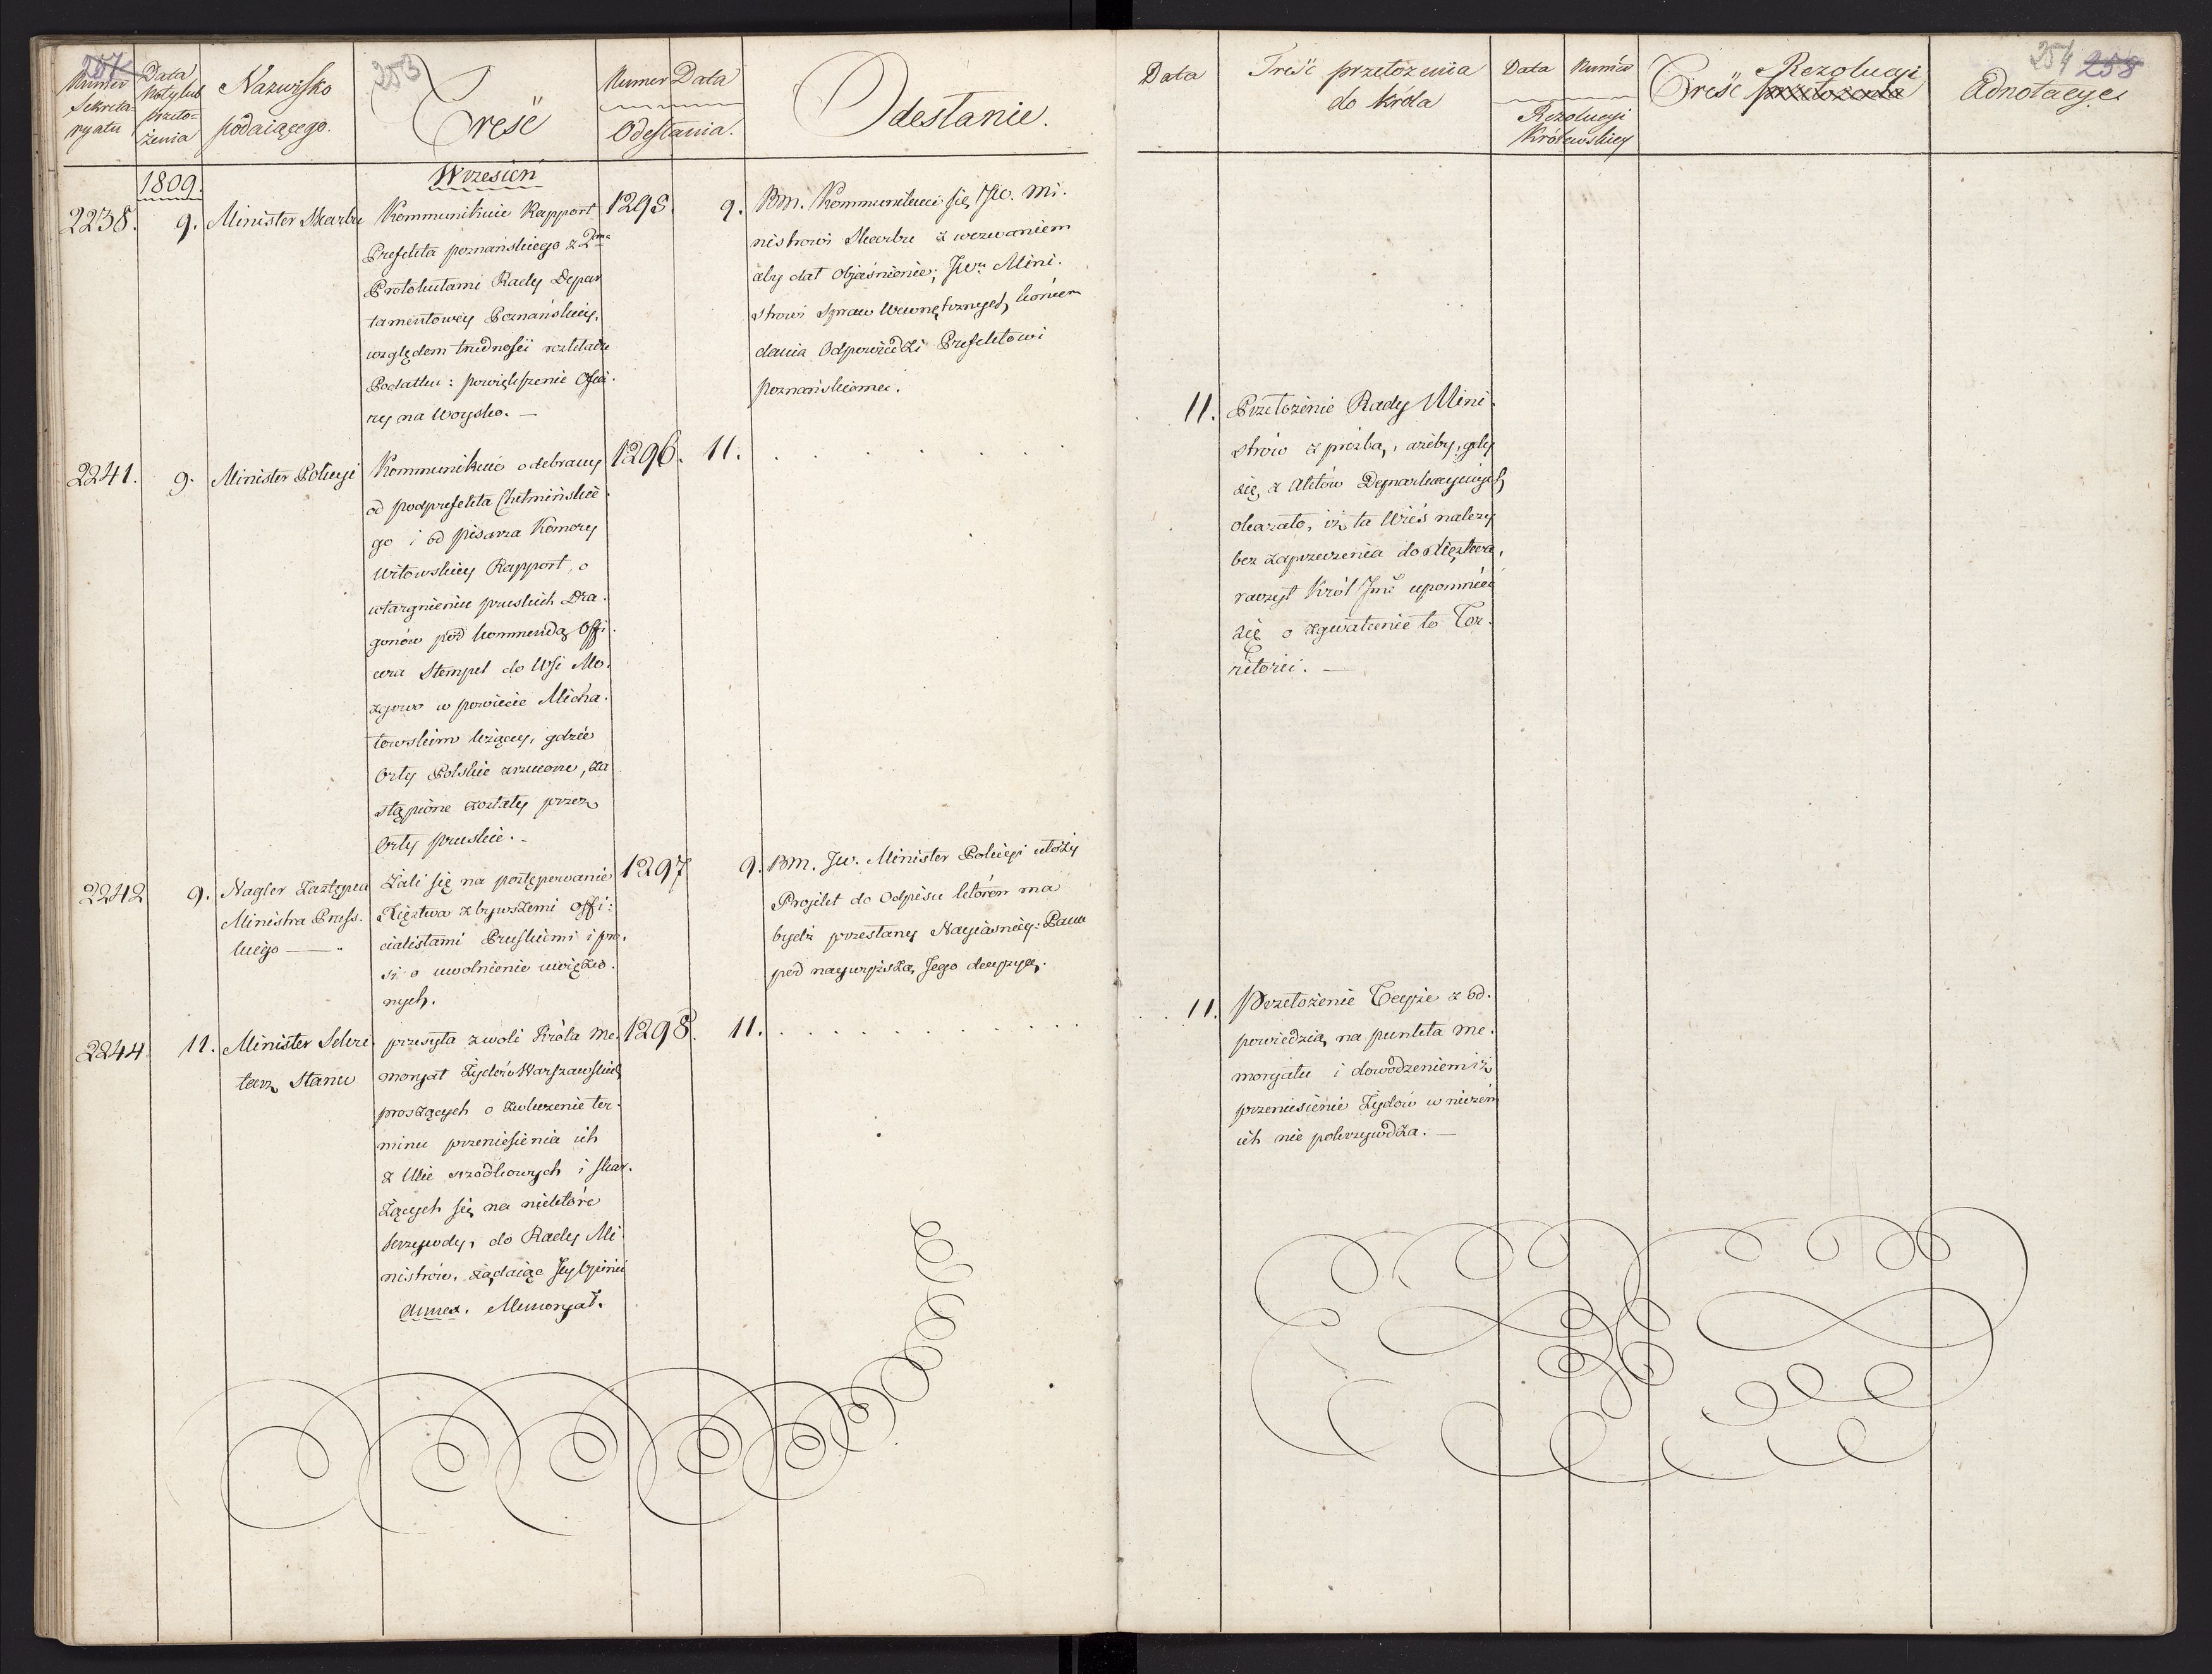 257
253
Numer Sekretaryatu
Data Noty lub przełożenia
Nazwisko podaiącego.
Treść
Numer Data
Odesłania.
Odesłanie.
1809.
Wrzesień
2238.
9.
Minister Skarbu
Kommunikuie Rapport
Prefekta poznańskiego z 2ma
Protokułami Rady Depar
tamentowey Poznańskiey,
względem trudności rozkładu
Podatku: powiększenie Ofia.
ry na Woysko. —
1295.
9.
Bm. Kommunikuie się JW. Mi.
nistrowi Skarbu z wezwaniem
aby dał Objaśnienie; JWu Mini.
strowi Spraw Wewnętrznych końcem
dania Odpowiedzi Prefektowi
poznańskiemu.
2241.
9.
Minister Policyi
Kommunikuie odebrany
od podprefekta Chełmińskie.
go i od pisarza Komory
Witowskiey Rapport, o
wtargnieniu pruskich Dra.
gonów pod kommendą Offi.
cera Stempel do Wsi Mo.
zgowo w powiecie Micha.
łowskim leżącey, gdzie
Orły Polskie zrzucone, za
stąpione zostały przez
Orły pruskie. -
1296.
11.
. . . . . .
2242
9.
Nagler Zastępca
Ministra Prus.
kiego — "
Żali się na postępowanie
Xięztwa z bywszemi offi:
cialistami Pruskiemi i pro.
si o uwolnienie uwięzio.
nych.
1297
9.
Bm. JW. Minister Policyi ułoży
Projekt do Odpisu którén ma
bydź przesłany Nayiaśniey: Panu
pod naywyższą Jego decyzyę.
2244.
11.
Minister Sekre
tarz Stanu
przesyła z woli Króla Me.
moryał Żydów Warszawskich
proszących o zwleczenie ter.
minu przeniesienia ich
z Ulic srzodkowych i skar.
żących się na niektóre
krzywdy, do Rady Mi
nistrów, żądaiąc Jey Opinii
Annex. Memoryał.
1298.
11.
. . . . . . . . . . .
Data
Treść przełożenia
do króla
Data Numer
Rezolucyi
Królewskiey
Treść Rezolucyi
254 258
Adnotacye
11.
Przełożenie Rady Mini.
strów z prożbą, ażeby, gdy
się z Aktów Demarkacyinych
okazało, iż ta Wieś należy
bez zaprzeczenia do Xięztwa,
raczył Król Jmć upomnieć
się o zgwałcenie to Ter.
ritorii. —
11.
Przełożenie Teyże z od.
powiedzią na punkta me.
moryału i dowodzeniem iż
przeniesienie Żydów w niczém
ich nie pokrzywdza. —